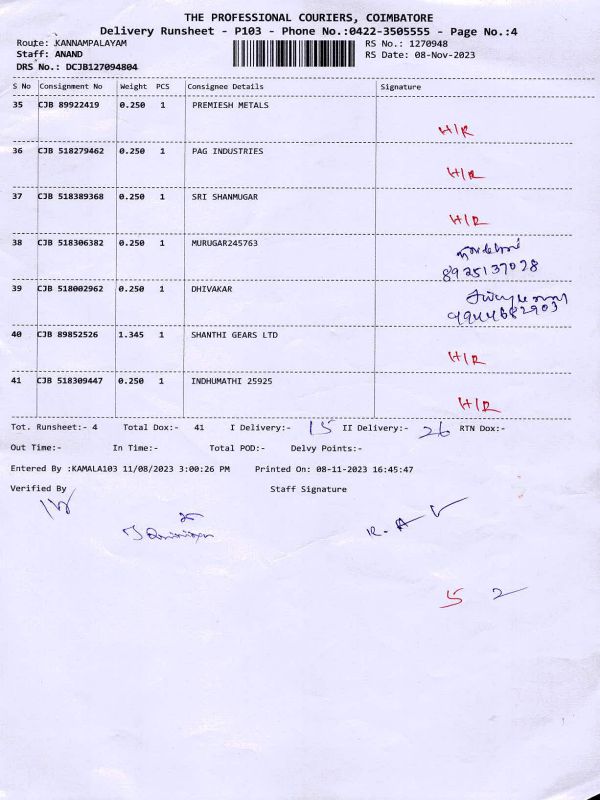 THE PROFESSIONAL COURIERS, COIMBATORE
Delivery Runsheet - P103 - Phone No.:0422-3505555 - Page No.:4
Route: KANNAMPALAYAM RS No.: 1270948
Staff: ANAND RS Date: 08-Nov-2023
DRS No.: DCJB127094804
S No Consignment No Weight PCS Consignee Details Signature
35 CJB 89922419 0.250 1 PREMIESH METALS
H/R
36 CJB 518279462 0.250 1 PAG INDUSTRIES
H/R
37 CJB 518389368 0.250 1 SRI SHANMUGAR
H/R
38 CJB 518306382 0.250 1 MURUGAR245763
8925137028
39 CJB 518002962 0.250 1 DHIVAKAR
9944682903
40 CJB 89852526 1.345 1 SHANTHI GEARS LTD
H/R
41 CJB 518309447 0.250 1 INDHUMATHI 25925
H/R
Tot. Runsheet:- 4 Total Dox:- 41 I Delivery:- 15 II Delivery:- 26 RTN Dox:-
Out Time:- In Time:- Total POD:- Delvy Points:-
Entered By :KAMALA103 11/08/2023 3:00:26 PM Printed On: 08-11-2023 16:45:47
Verified By Staff Signature
5 2